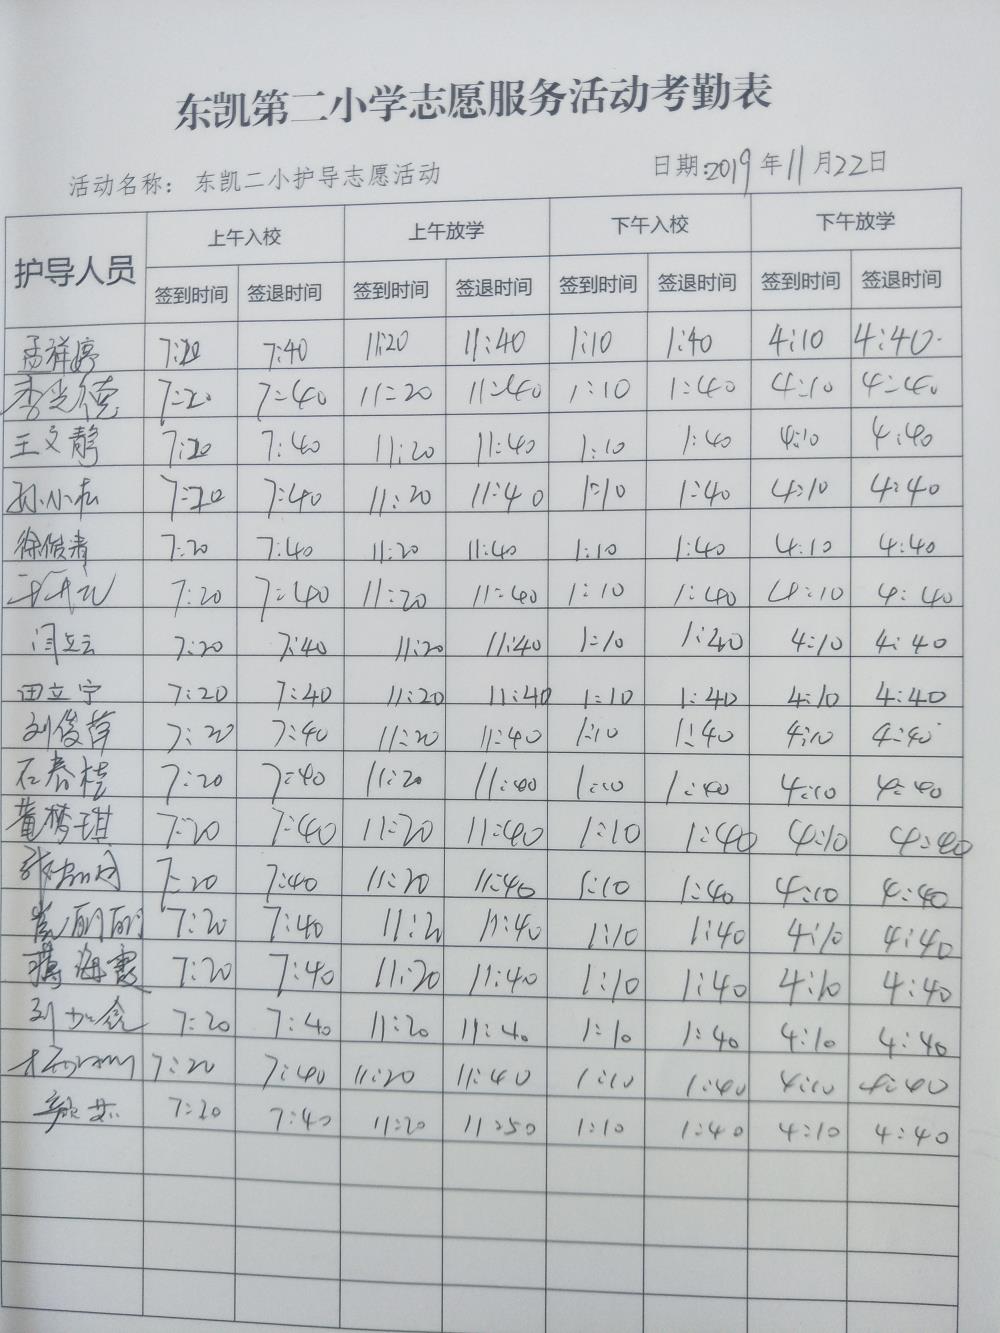 东凯第二小学志愿服务活动考勤表
活动名称：东凯二小护导志愿活动 日期:2019年11月22日
护导人员 上午入校 上午放学 下午入校 下午放学
签到时间 签退时间 签到时间 签退时间 签到时间 签退时间 签到时间 签退时间
孟祥婷 7:20 7:40 11:20 11:40 1:10 1:40 4:10 4:40
李光德 7:20 7:40 11:20 11:40 1:10 1:40 4:10 4:40
王文静 7:20 7:40 11:20 11:40 1:10 1:40 4:10 4:40
孙小松 7:20 7:40 11:20 11:40 1:10 1:40 4:10 4:40
徐俊青 7:20 7:40 11:20 11:40 1:10 1:40 4:10 4:40
7:20 7:40 11:20 11:40 1:10 1:40 4:10 4:40
闫立云 7:20 7:40 11:20 11:40 1:10 1:40 4:10 4:40
田立宁 7:20 7:40 11:20 11:40 1:10 1:40 4:10 4:40
刘俊萍 7:20 7:40 11:20 11:40 1:10 1:40 4:10 4:40
石春桂 7:20 7:40 11:20 11:40 1:10 1:40 4:10 4:40
董梦琪 7:20 7:40 11:20 11:40 1:10 1:40 4:10 4:40
7:20 7:40 11:20 11:40 1:10 1:40 4:10 4:40
崔丽丽 7:20 7:40 11:20 11:40 1:10 1:40 4:10 4:40
海霞 7:20 7:40 11:20 11:40 1:10 1:40 4:10 4:40
刘 7:20 7:40 11:20 11:40 1:10 1:40 4:10 4:40
7:20 7:40 11:20 11:40 1:10 1:40 4:10 4:40
7:20 7:40 11:20 11:50 1:10 1:40 4:10 4:40